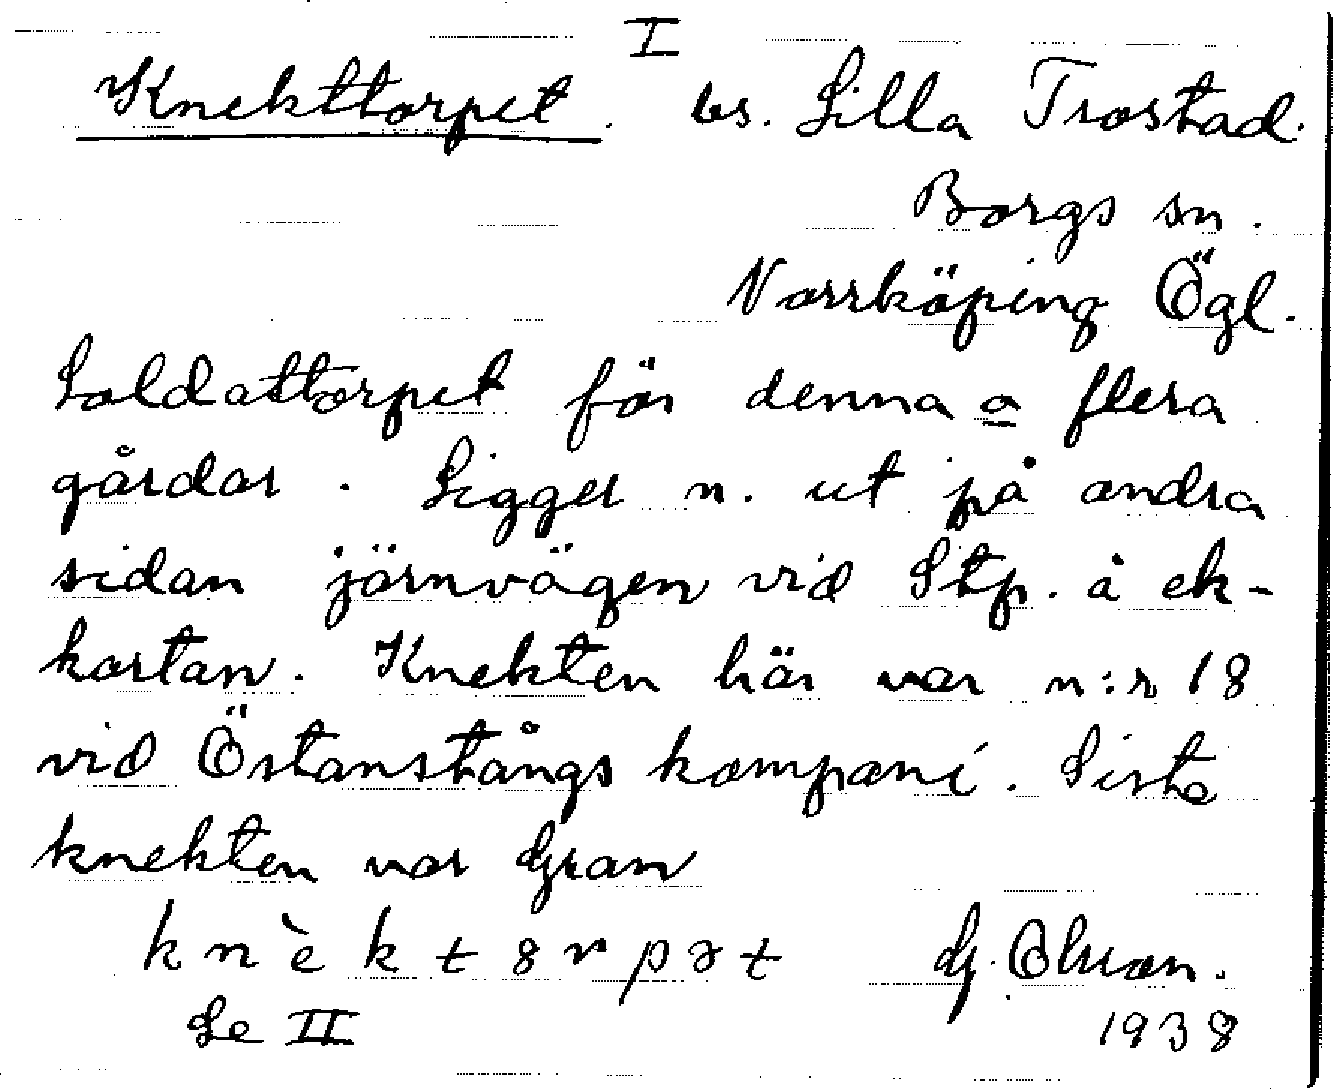 I
Knekttorpet. bs. Lilla Trostad.
Borgs sn.
Norrköping Ögl.
Soldattorpet för denna o flera
gårdar. Ligger n. ut på andra
sidan järnvägen vid Stp. å ek-
kartan. Knekten här var n:r 18
vid Östanstångs kompani. Sista
knekten var Gran
k n è k t 8 r p ə t G. Ohman.
Se II 1938